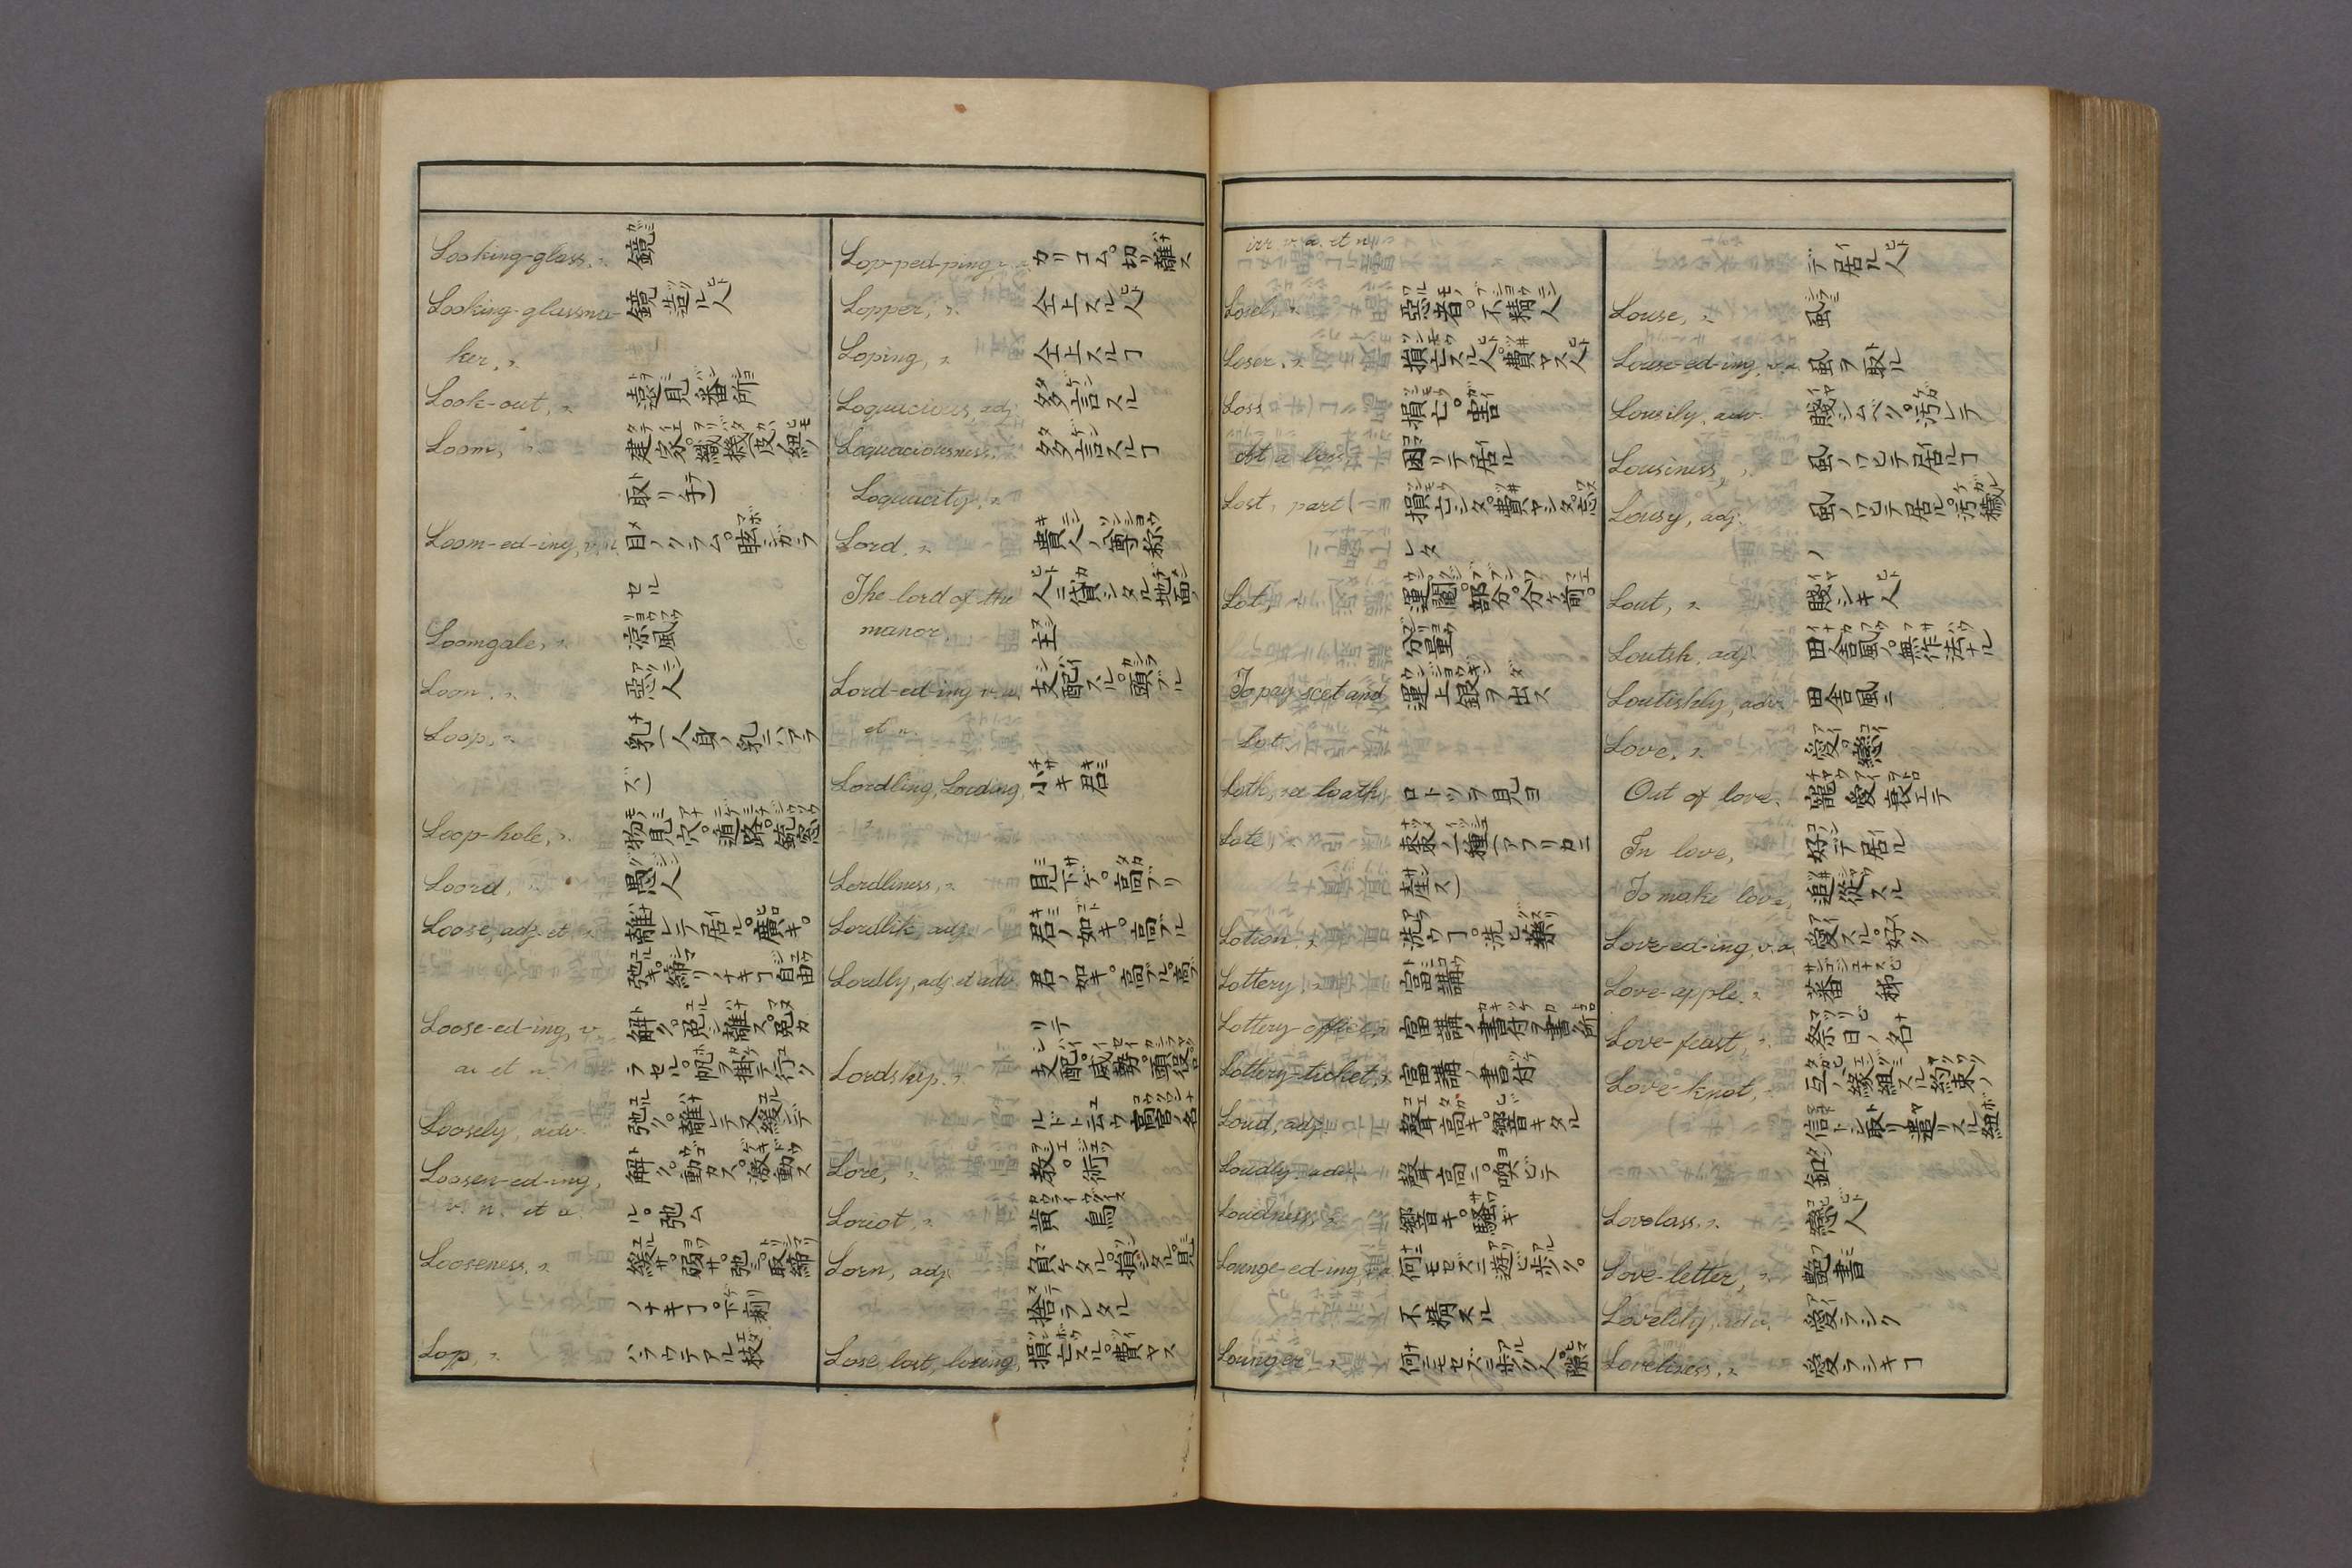 Looking-glass, n. 鏡
Looking-glassma- 鏡造ル人
ker, n.
Look-out, n. 遠見番所
Loom, n. 建家。織機(皮ノ紐ノ
取リ手)
Loom-ed-ing, v. n. 目ノクラム。眩シガラ
セル
Loomgale, n. 涼風
Loon, n. 惡人
Loop, n. 乳(人身ノ乳ニハアラ
ズ)
Loop-hole, n. 物見穴。遁路。銃窓
Loord, n. 愚人
Loose, adj. et n. 離レテ居ル。廣キ。
弛キ。締リノナキヿ自由
Loose-ed-ing, v. 解ク。免シ離ス。免カ
a. et n. ラセル。帆ヲ掛テ行ク
Loosely, adv. 弛ク。離レテ又緩テ
Loosen-ed-ing, 解ク。動カス。激動ス
v. n. et a. ル。弛ム
Looseness, n. 緩サ。弱サ。弛ミ。取締
ノナキヿ。下痢
Lop, n. ハラウテアル枝
Lop-ped-ping, カリコム。切リ離ス
Lopper, n. 仝上スル人
Loping, n. 仝上スルヿ
Loquacious, adj. 多言スル
Loquaciousness, 多言スルヿ
Loquacity, n.
Lord, n. 貴人ノ尊称
The lord of the 人ニ貸シタル地面ノ
manor, 主
Lord-ed-ing v. a. 支配スル。頭ブル
et n.
Lordling, Lording, 小キ君
n.
Lordliness, n. 見下ケ。高ブリ
Lordlik, adj. 君ノ如キ。高ブル
Lordly, adj. et adv. 君ノ如キ。高ブル。高ブ
リテ
Lordship, n. 支配。威勢。頭役。
ルドトニウ高官ノ名
Lore, n. 教。術
Loriot, n. 黄鳥
Lorn, adj. 負ケタル。損シタル。見
捨ラレタル
Lose, lost, losing, 損亡スル。費ヤス
irr. v. a. et n.
Losel, n. 惡者。不精人
Loser, n. 損亡スル人。費ヤス人
Loss 損亡。害
At a loss, 困リテ居ル
Lost, part. 損亡シタ。費ヤシタ。忘
レタ
Lot, n. 運。鬮。部分。分ケ前。
分量
To pay scot and 運上銀ヲ出ス
Lot,
Loth, s. a. loath, ロトツヲ見ヨ
Lote, 棗ノ一種(アフリカニ
産ス)
Lotion, n. 洗ウヿ。洗ヒ藥
Lottery, n. 富講
Lottery-office, n. 富講ノ書付ヲ書ク所
Lottery-ticket, n. 富講ノ書付
Loud, adj. 聲高キ。響キタル
Loudly, adv. 聲高ニ。喚ビテ
Loudness, n. 響キ。騒ギ
Lounge-ed-ing, v. n. 何モセズニ遊ビ歩ク。
不精スル
Lounger n. 何ニモセズニ歩ク人
デ居ル人
Louse, n. 虱
Louse-ed-ing, v. a. 虱ヲ取ル
Lousily, adv. 賤シムベク。汚レテ
Lousiness, n. 虱ノワヒテ居ルヿ
Lousy, adj. 虱ノワヒテ居ル。汚穢
ノ
Lout, n. 賤シキ人
Loutish, adj. 田舎風ノ。無作法ナル
Loutishly, adv. 田舎風ニ
Love, n. 愛。戀
Out of love, 寵愛衰エテ
In love, 好テ居ル
To make love, 追從スル
Love-ed-ing, v. a. 愛スル。好ク
Love-apple, n. 蕃柿
Love-feast, n. 祭日ノ名
Love-knot, n. 互ノ縁組スル約束ノ
信トシ取リ遣リスル紐
釦
Lovelass, n. 戀人
Love-letter, n. 艶書
Lovelily, adv. 愛ラシク
Loveliness, n. 愛ラシキヿ